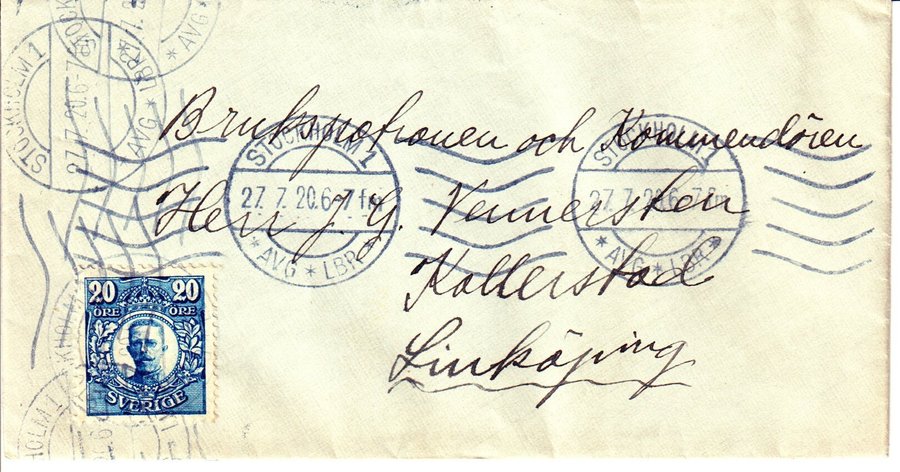 STOCKHOLM 1
27. 7. 20. 6-7
AVG * LBR *
Brukspatronen och Kommendören
STOCKHOLM 1
27. 7. 20. 6-7 f
* AVG * LBR
STOCKHOLM 1
27. 7. 20. 6-7 f
* AVG * LBR *
Herr J. G. Vennersten
Kallerstad
Linköping
20 20
ÖRE ÖRE
SVERIGE